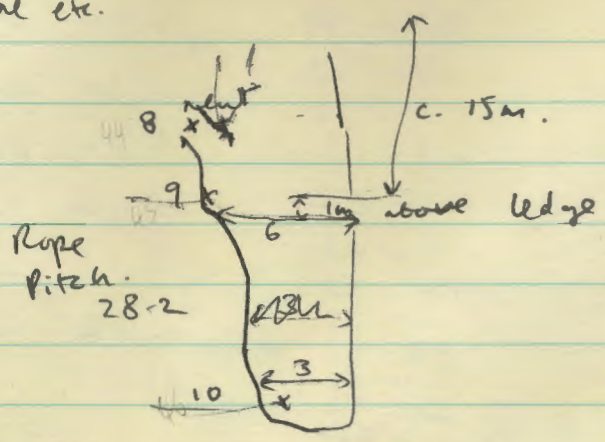 etc.
8
c. 15m.
9
1m above ledge
6
Rope
Pitch.
28.2
3
10